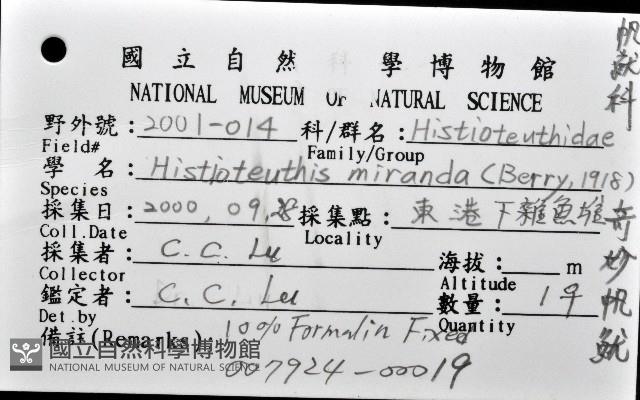 國立自然 學博物館
NATIONAL MUSEUM OF NATURAL SCIENCE
野外號: 2001-014 科/群名: Histioteuthidae
Field# Family/Group
學 名: Histioteuthis miranda (Berry, 1918)
Species
採集日: 2000, 09, 28 採集點: 東港下雜魚堆
Coll.Date Locality
採集者: C. C. Lu 海拔: m
Collector Altitude
鑑定者: C. C. Lu 數量: 1♀
Det.by Quantity
備註(Remarks): 10% Formalin Fixed
007924-00019
帆魷科
奇妙帆魷
國立自然科學博物館
NATIONAL MUSEUM OF NATURAL SCIENCE